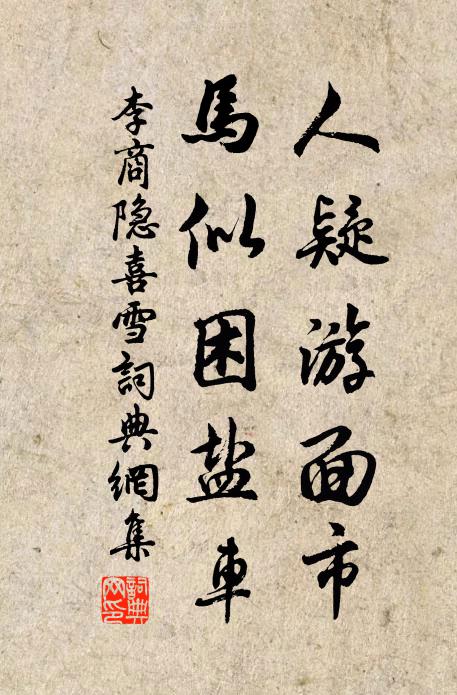 人疑游面市
馬似困盐車
李商隐喜雪詞典網集
詞典
网印